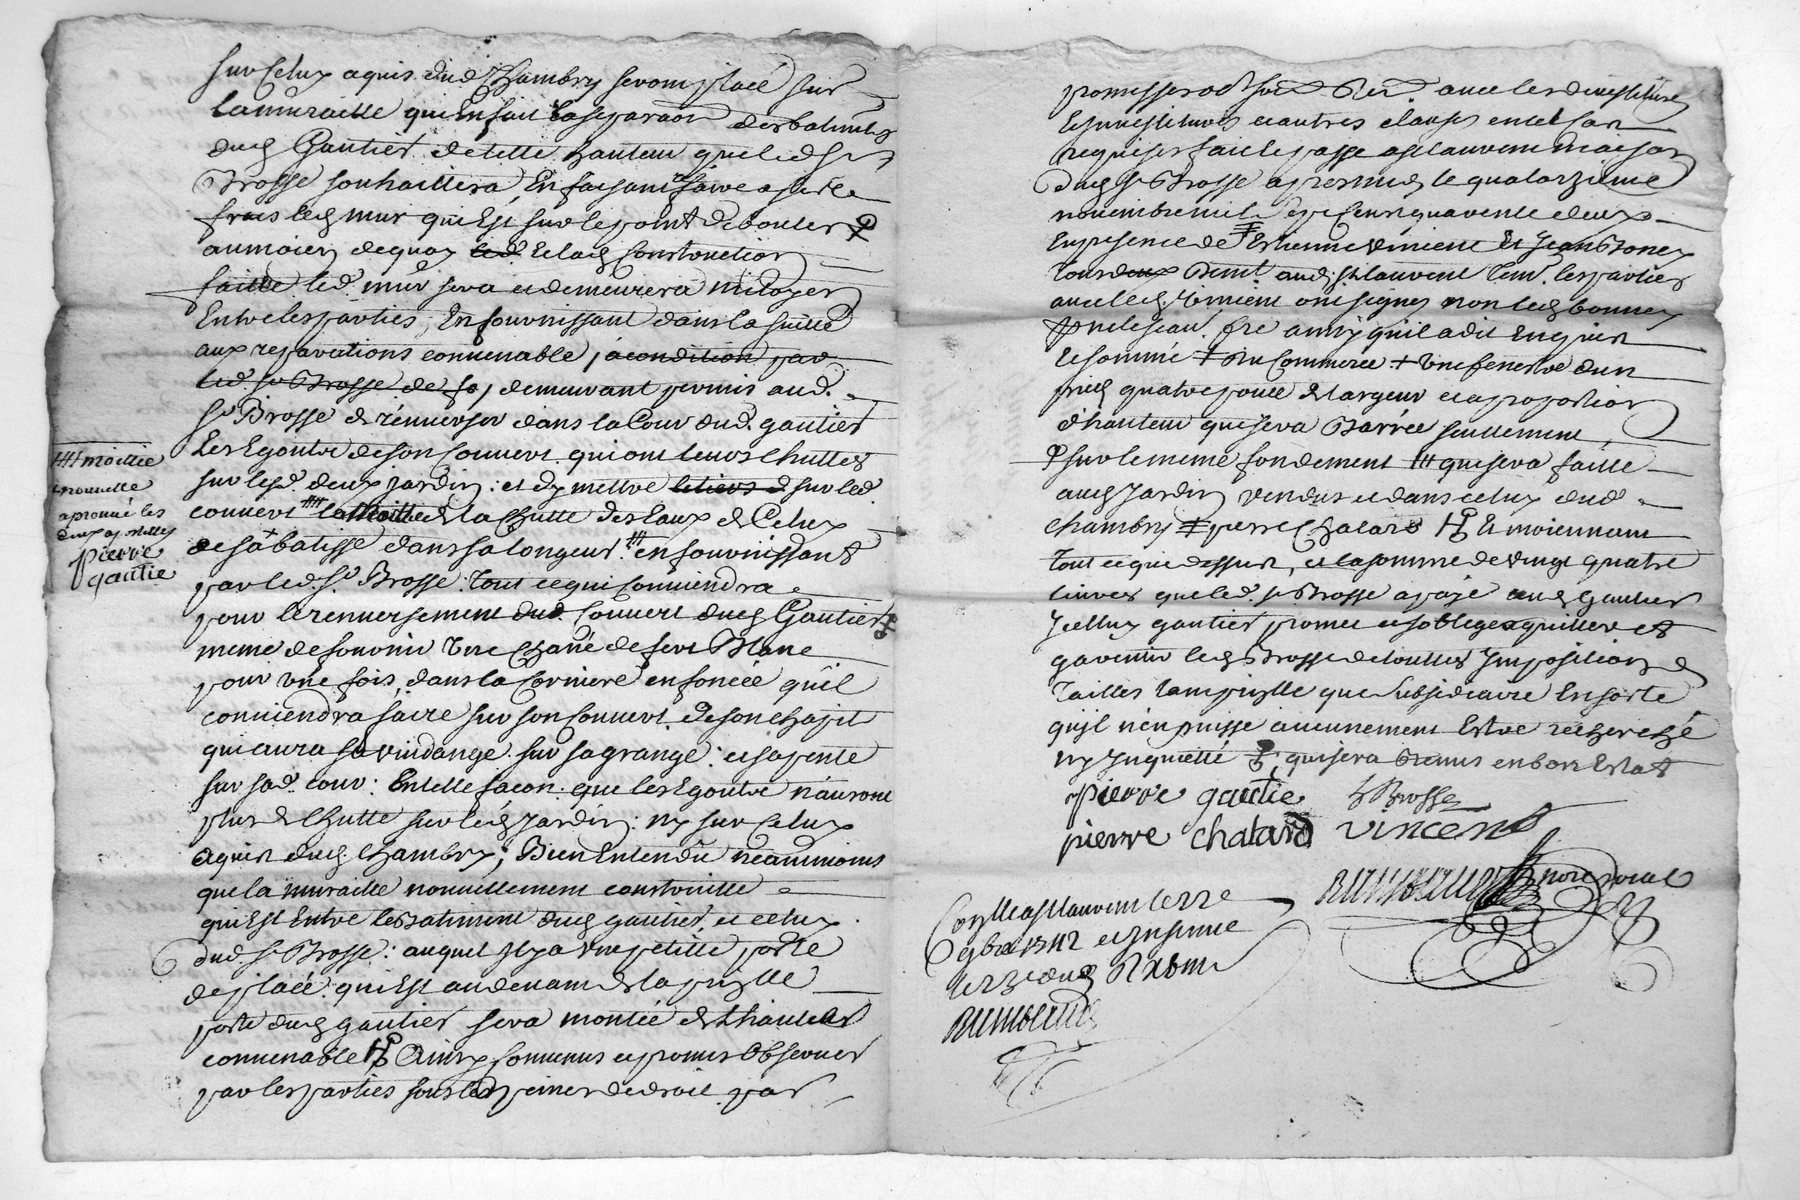 sur Celux aquis dud Chambry seront placé sur
la muraille qui En fait la separaon des batiments
dud Gautier de telle hauteur que led Sr
Brosse souhaittera, En faisant faire a juste
frais led mur qui Est sur le point debouler
au moien de quoy led Et lad Construction
faitte led. mur sera et demeurera mitoyen
Entre les parties, En fournissant dans la suitte
aux reparations conuenable, a condition par
led. Sr Brosse de so, demeurant permis aud.
Sr Brosse de renuerser dans la Cour dud. gautier
Les Egoutre de son Couuert qui ont leurs chuttes
sur lesd. deux jardin : et dy mettre le tiers d sur led.
couuert ## la Moittie de la Chutte des Eaux de Celux
de sa batisse dans sa longeur ## en fournissant
par led. Sr Brosse. Tout ce qui Conuiendra
pour le renuersement dud Couuert dud Gautier
meme de fournir Une Chané de fert Blanc
pour une fois, dans la Corniere enfoncéé qu'il
conuiendra faire sur son Couuert de son chapit
qui aura sa vindange sur sa grange : et sa pente
sur sad. cour : En telle façon que les Egoutre n'auront
plus de Chutte sur led Jardin : ny sur Celux
aquis dud. Chambry ; Bien Entendu neammoins
que la muraille nouuellement construitte
qui Est Entre le Batiment dud gautier, et celux
dud Sr Brosse : auquel Il y a une petitte porte
de placé qui Est au deuant de la
porte dud gautier sera montéé de hauteur
conuenable Ainsy Conuenus et promis obseruer
par les parties sous les peines de droit par
## moittie
nouuelle
aprouué les
pierre
gautie
promesses obt
les inuestitures et autres clauses
requises fait et passe a St laurent maison
dud Sr Brosse apres midy le quatorzieme
nouembre mil sept cens quarente deux
En presence de # Estienne vincent Et Jean Bonnex
tous deux aud. St laurent Tem. les parties
auec led. Vincent ont signez non led bonnex
qu'il a dit Enquis
Et sommé + + Une fenestre d'un
pied quatre pouce de largeur et a proportion
d'hauteur qui sera Barréé seullement
sur le meme fondement ## qui sera faitte
aud Jardin vendus et dans celux dud
Chambry # pierre Chalard Et moiennant
Tout ce que dessus, et la somme de vingt quatre
liures que led. Sr Brosse a payé aud Gautier
Icellux gautier promet et soblige aquitter et
garentir led Brosse de touttes Imposition
Tailles tant que subsidiaire En sorte
quil n'en puisse aucunement Estre recherché
ny Inquietté qui sera tenus en bon Estat
pierre gautie Brosse
pierre chalard vincent
Conlle a St laurent
1742